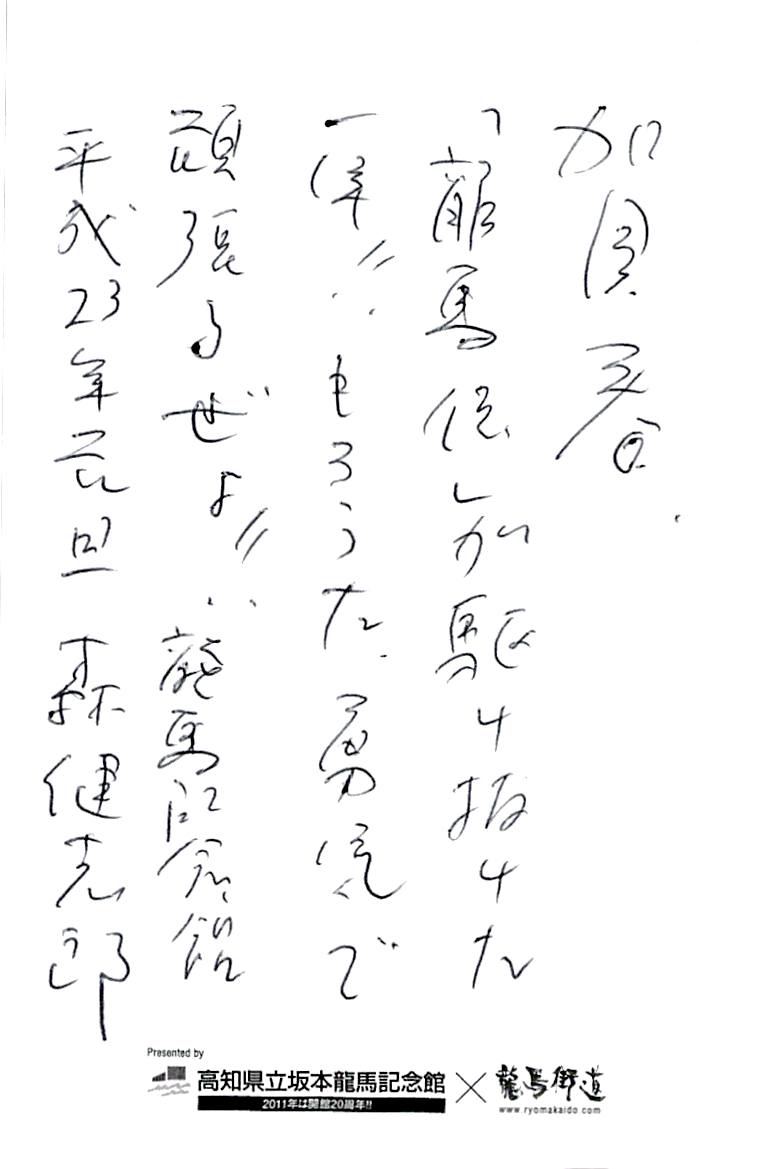 加賀春
「龍馬伝」が駆け抜けた
一年!! もろうた勇気で
頑張るぜよ!! 龍馬記念館
平成23年元旦 森健志郎
Presented by
高知県立坂本龍馬記念館
2011年は開館20周年!!
×
龍馬街道
www.ryomakaido.com